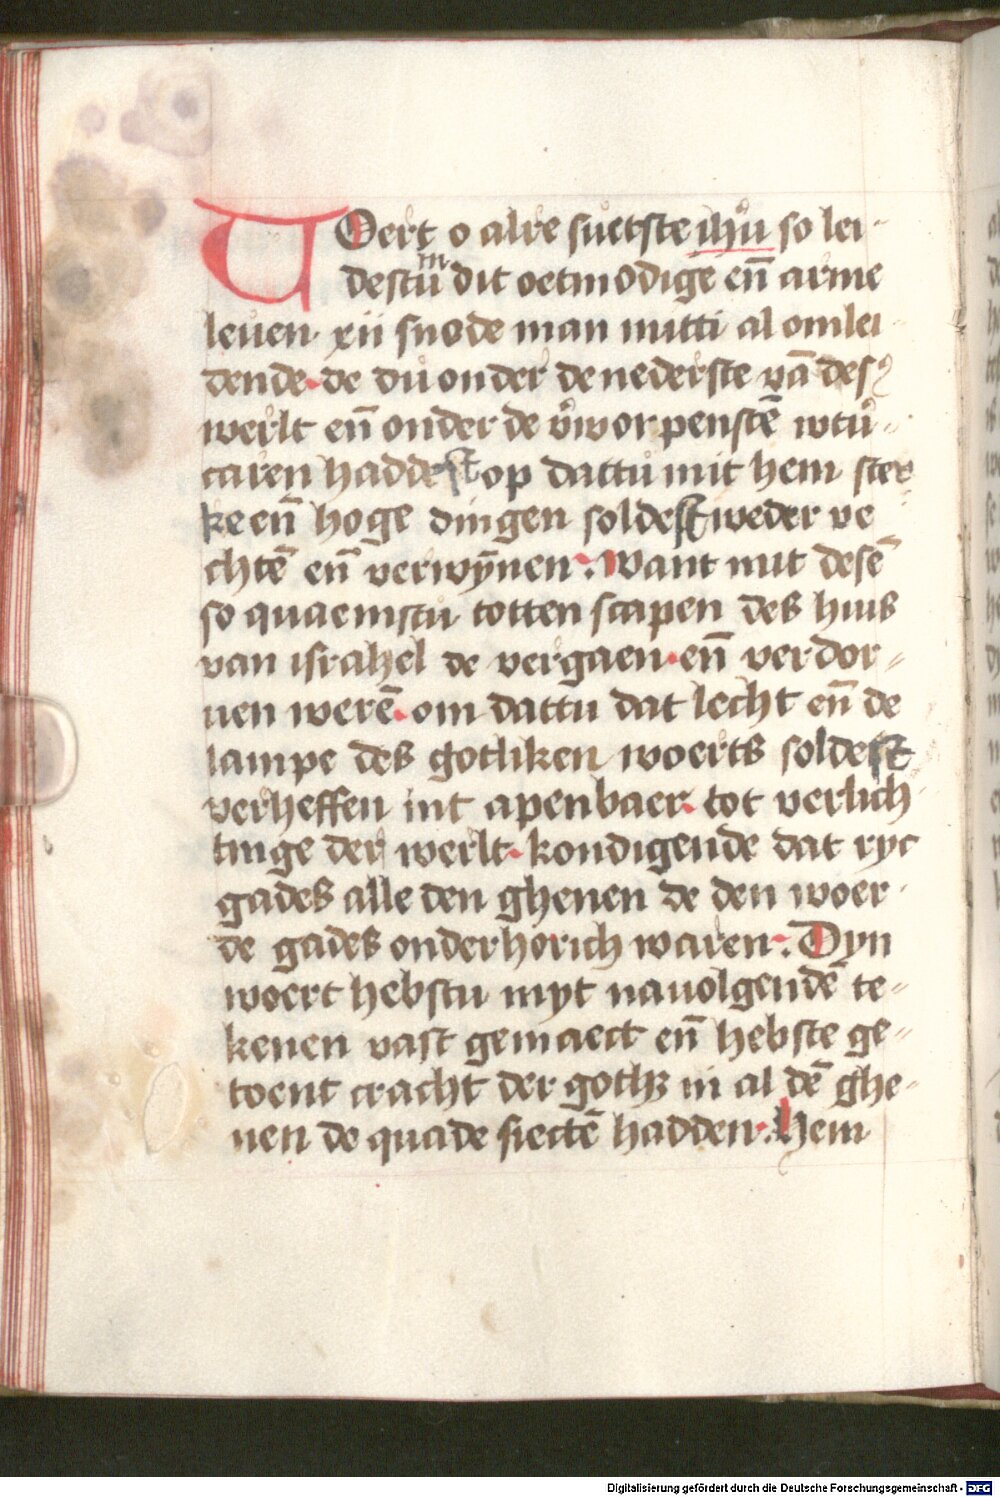 VOert o alre suetste ihu so lei-
destu in dit oetmodige en̄ arme
leuen xii snode man mitti al omlei
dende. de du onder de nederste vā des
werlt en̄ onder de v̄worpenstē wtu-
caren haddest op dattu mit hem ster
ke en̄ hoge dingen soldest weder ve
chtē en̄ verwȳnen. Want mit desē
so quaemstu totten scapen des huis
van israhel de vergaen. en̄ verdor-
uen werē. om dattu dat lecht en̄ de
lampe des gotliken woerts soldest
verheffen int apenbaer. tot verlich-
tinge der werlt. kondigende dat ryc
gades alle den ghenen de den woer-
de gades onderhorich waren. Dyn
woert hebstu myt nauolgendē te-
kenen vast gemaect en̄ hebste ge-
toent cracht der gothz in al dē ghe-
nen de quade siectē hadden. Hem
Digitalisierung gefördert durch die Deutsche Forschungsgemeinschaft - DFG